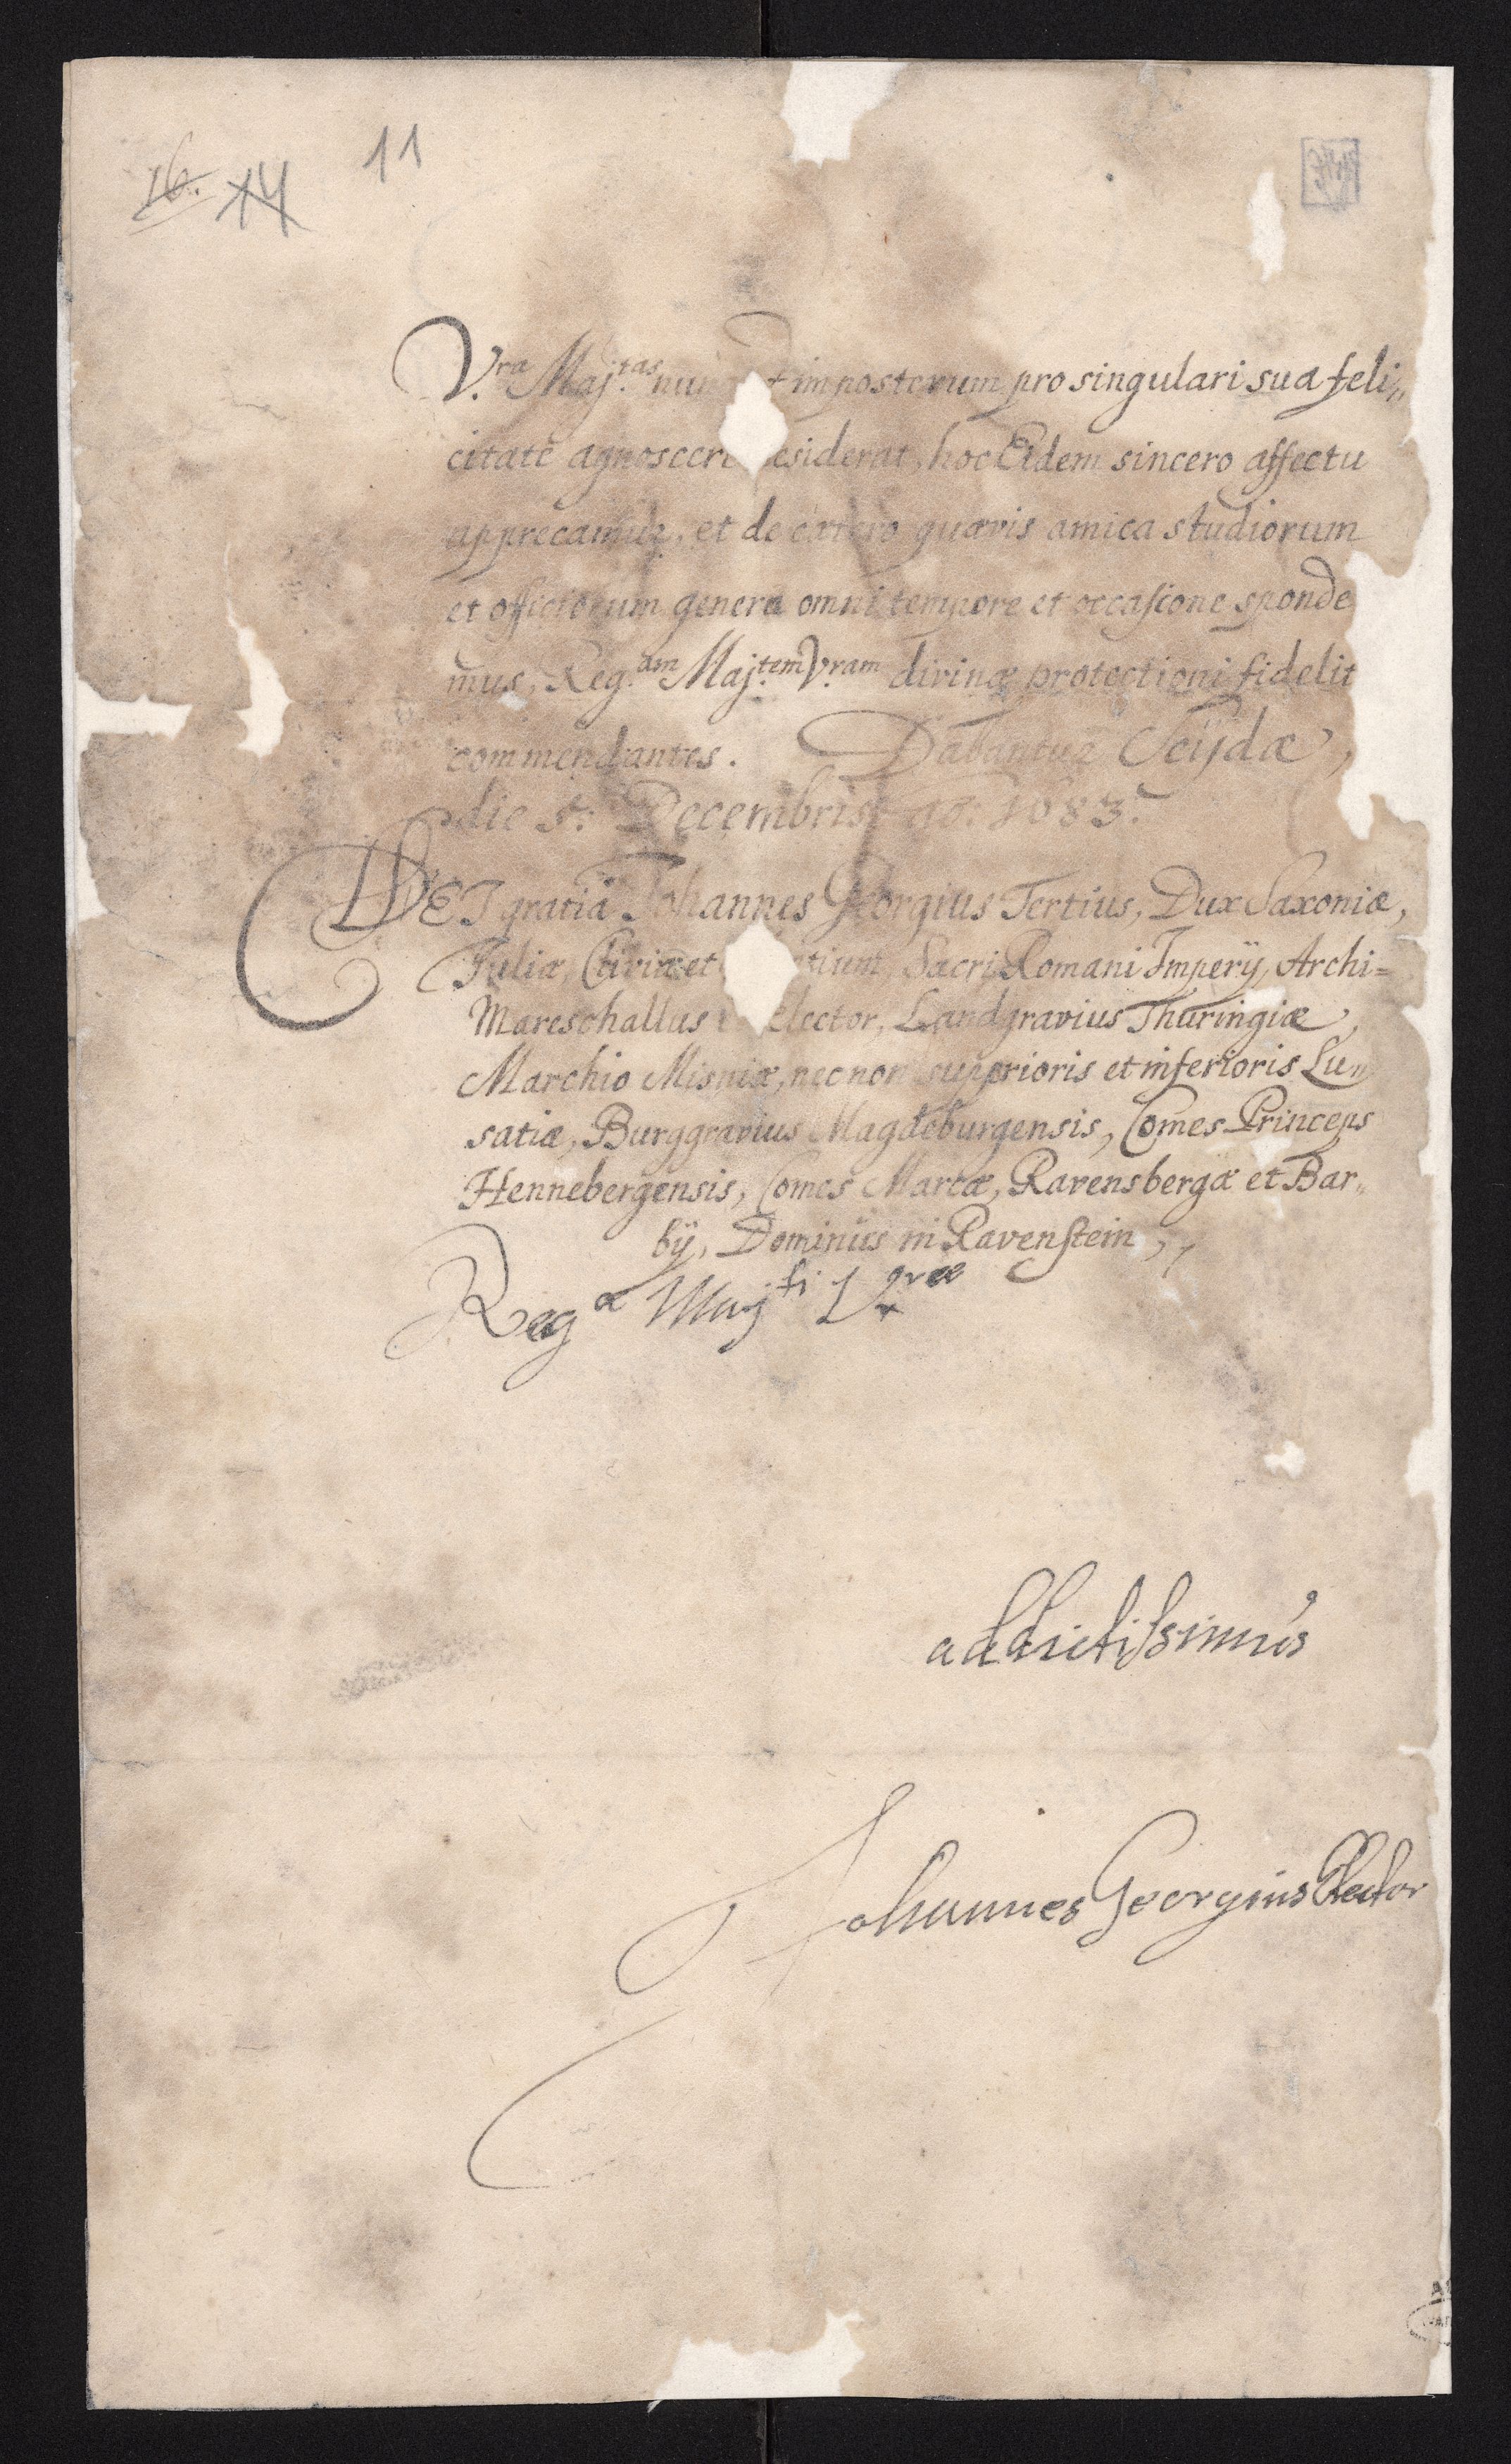 16. 14 11
V.ra Maj.tas nun t imposterum pro singulari sua feli„
citate agnoscere esiderat, hoc Eidem sincero affectu
apprecamur, et de cætero quævis amica studiorum
et officiorum genera omni tempore et occasione sponde
mus, Reg.am Maj.tem V.ram divinæ protectioni fidelit
commendantes. Dabantur Seÿdæ,
die 5. Decembris ao. 1683.
DEI gratiâ Johannes Georgius Tertius, Dux Saxoniæ,
Juliæ, Cliviæ et tium, Sacri Romani Imperÿ, Archi=
Mareschallus elector, Landgravius Thuringiæ,
Marchio Misniæ, nec non superioris et inferioris Lu„
satiæ, Burggravius Magdeburgensis, Comes Princeps
Hennebergensis, Comes Marcæ, Ravensbergæ et Bar„
bÿ, Dominus in Ravenstein,
Regæ Majti Vræ
addictissimus
Johannes Georgius Elector